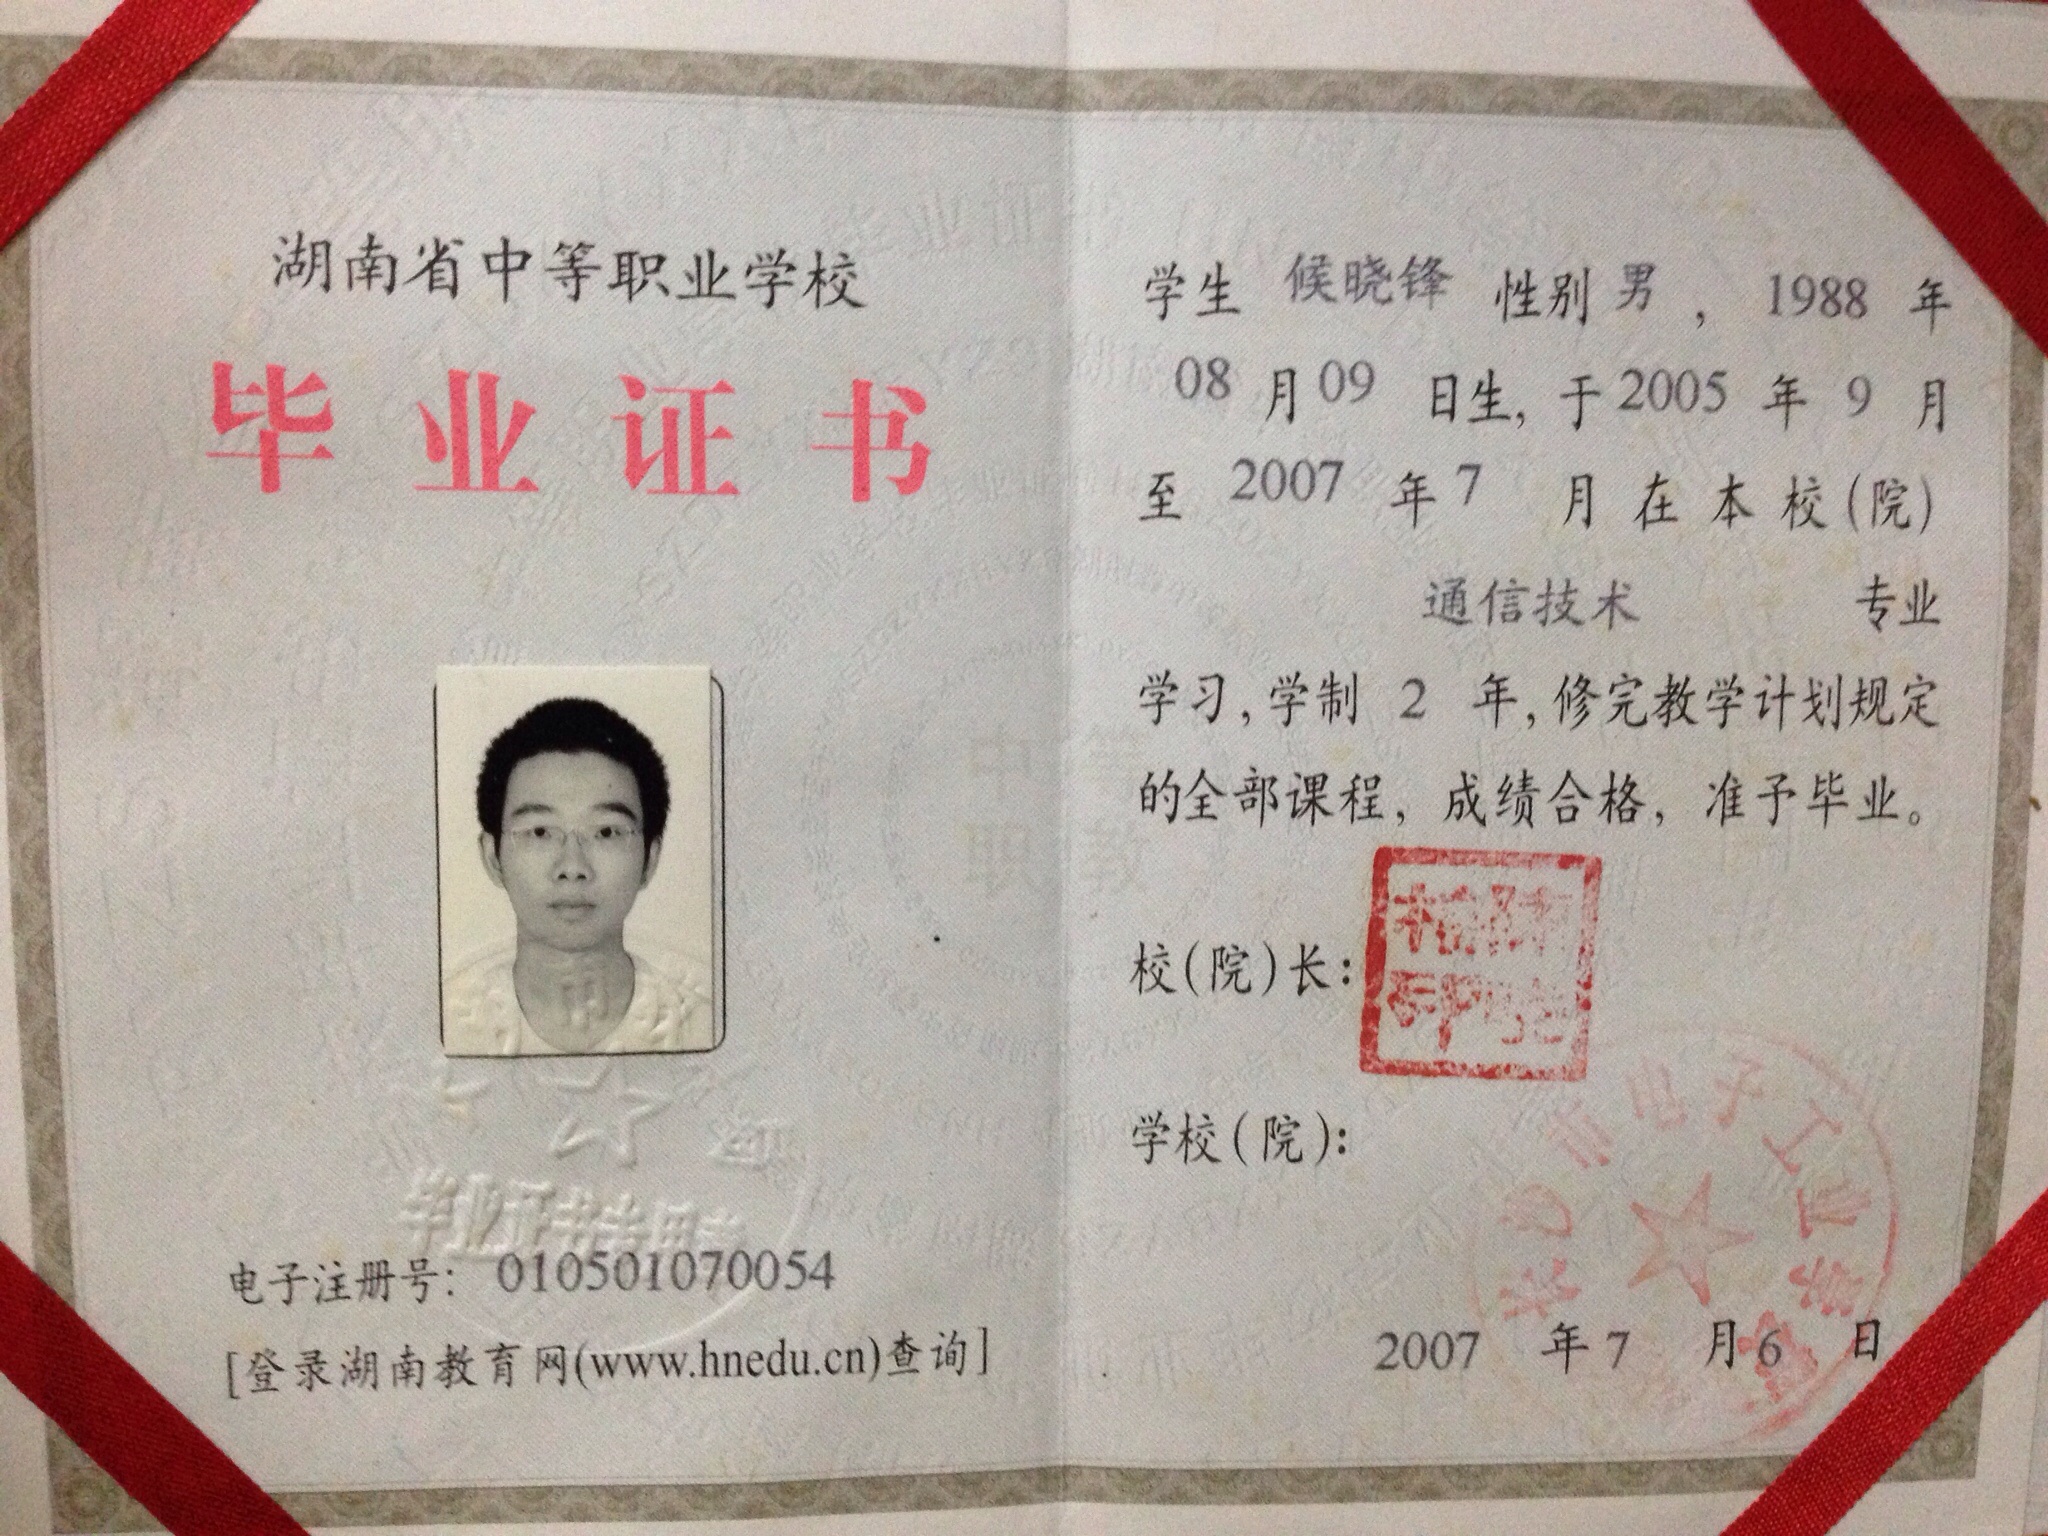 湖南省中等职业学校
毕业证书
电子注册号：010501070054
[登录湖南教育网(www.hnedu.cn)查询]
学生 候晓锋 性别 男，1988 年
08 月 09 日生，于 2005 年 9 月
至 2007 年 7 月在本校(院)
通信技术 专业
学习，学制 2 年，修完教学计划规定
的全部课程，成绩合格，准予毕业。
校(院)长：
学校(院)：
长沙市电子工业学校
2007 年 7 月 6 日
中等
职教
毕业证书专用章